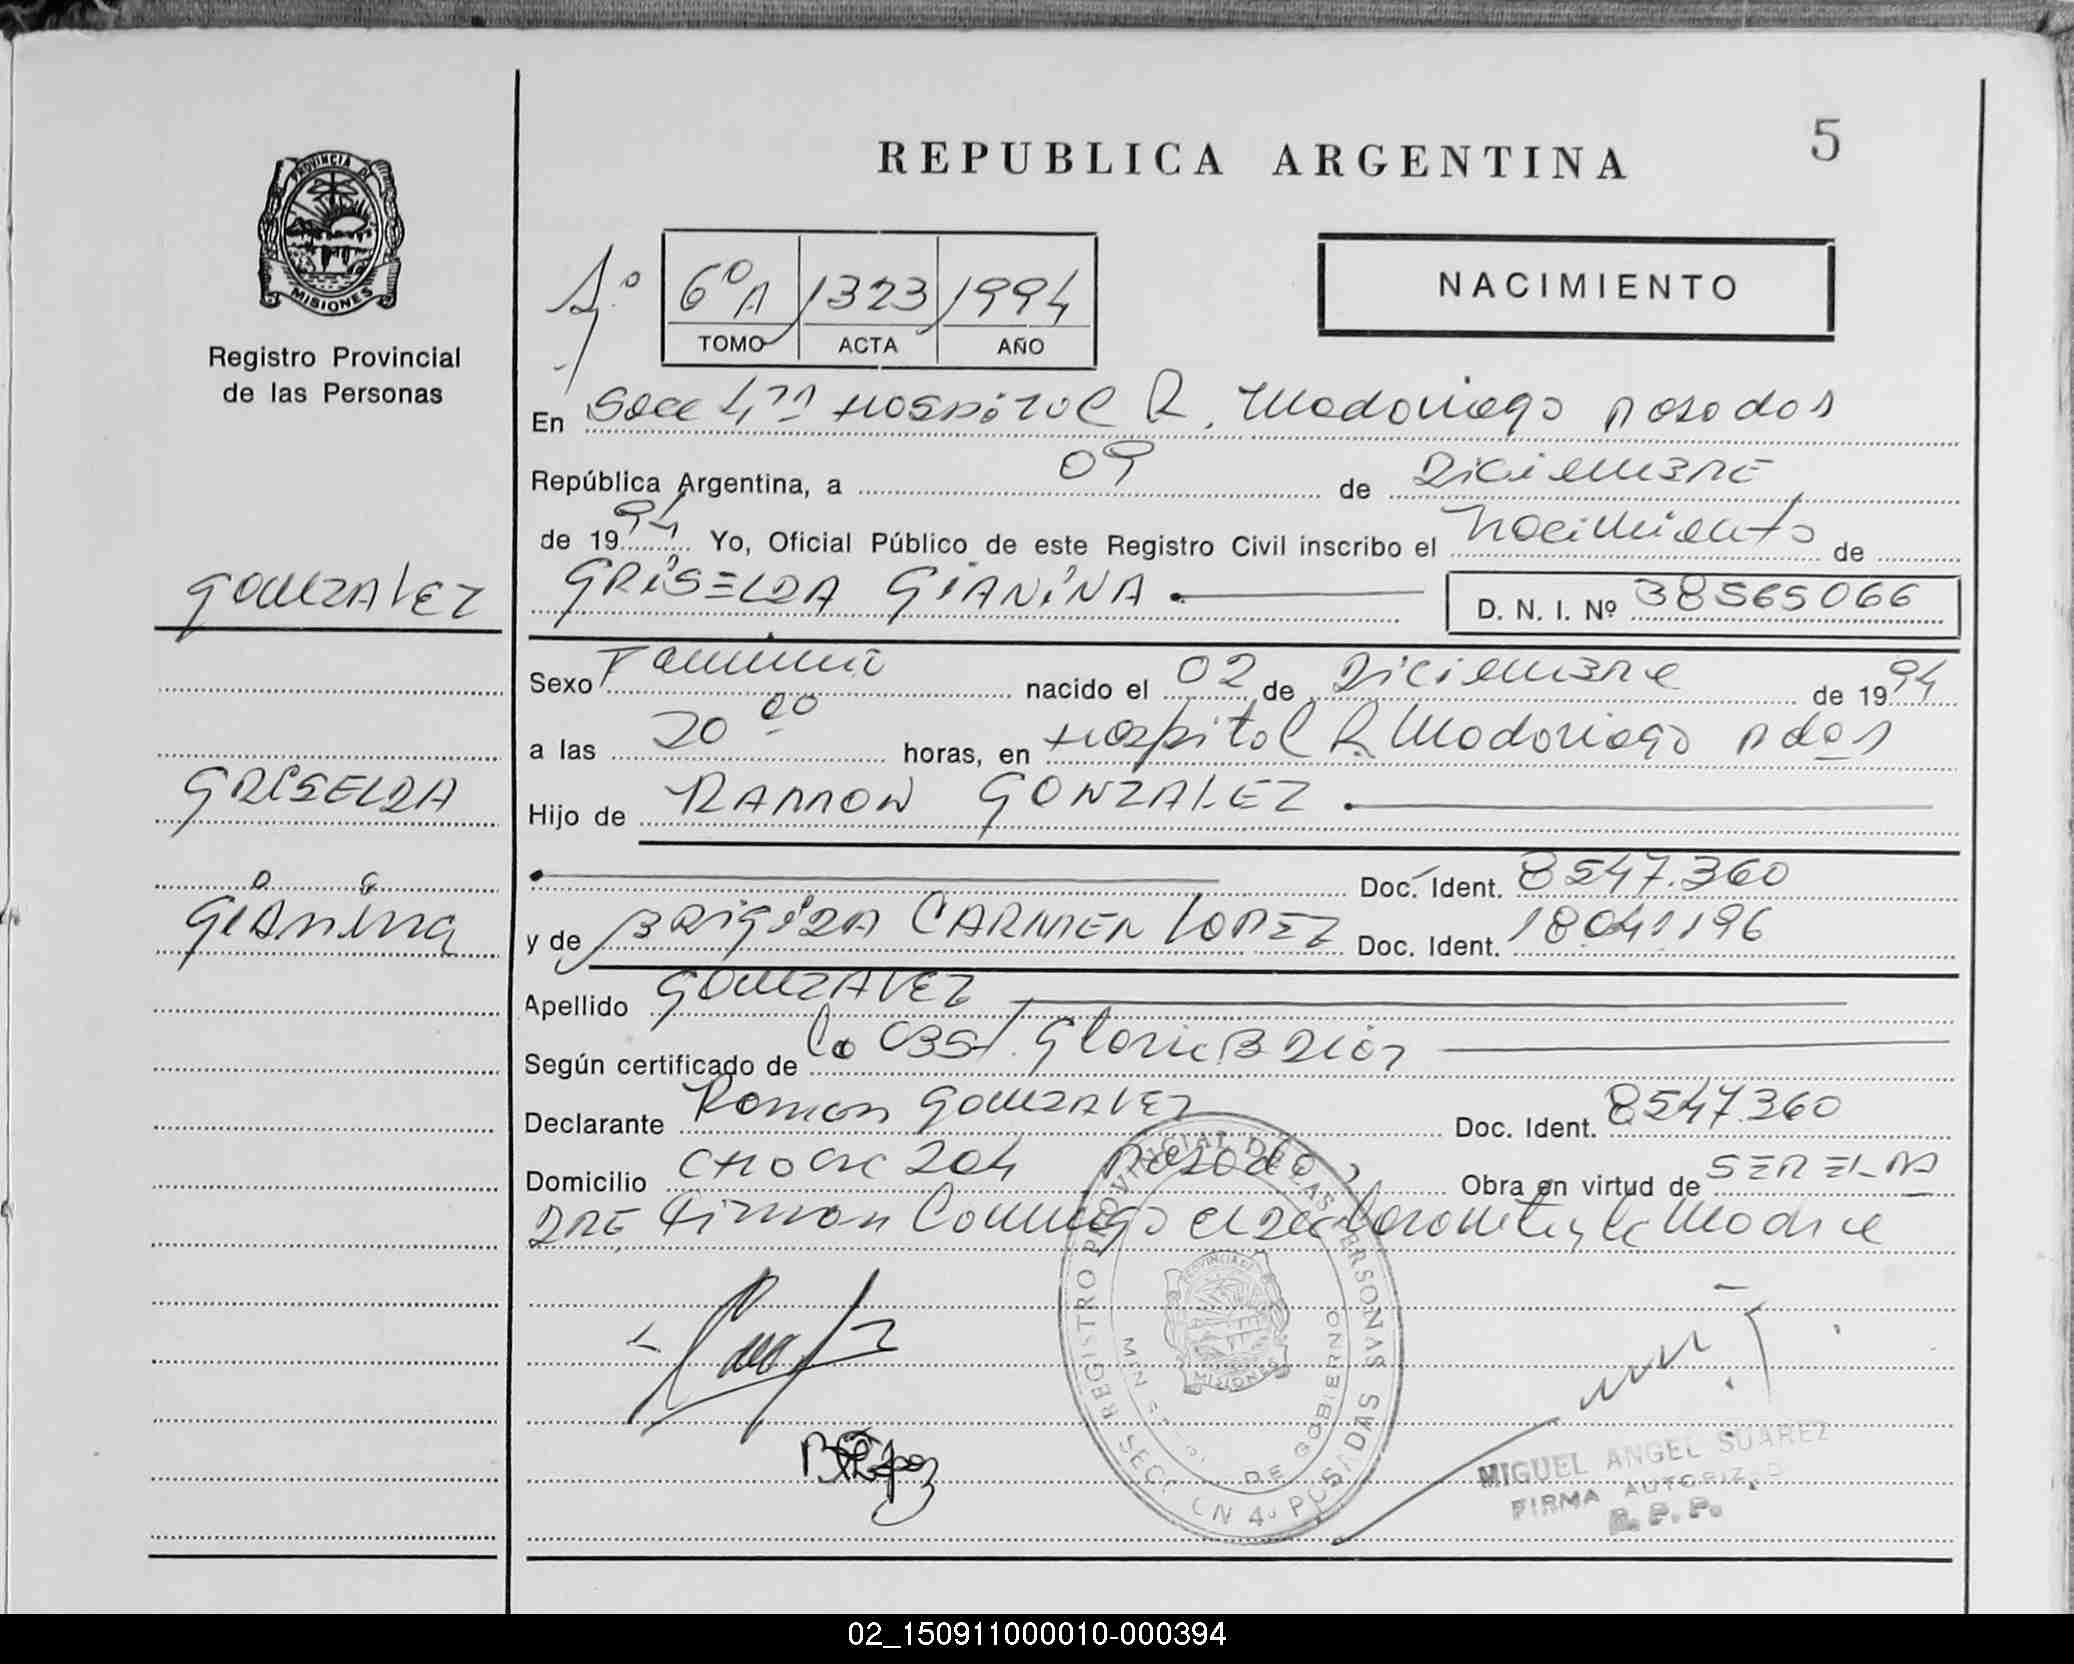 5
REPUBLICA ARGENTINA
PROVINCIA DE
MISIONES
Registro Provincial
de las Personas
6º A 1323 1994
TOMO ACTA AÑO
NACIMIENTO
En Secc 4ta Hospital R. Madariaga Posadas
República Argentina, a 09 de Diciembre
de 1994 Yo, Oficial Público de este Registro Civil inscribo el Nacimiento de
GRISELDA GIANINA D. N. I. Nº 38565066
GONZALEZ
Sexo Femenino nacido el 02 de Diciembre de 1994
a las 20 00 horas, en Hospital R. Madariaga Pdas
GRISELDA
Hijo de RAMON GONZALEZ
Doc. Ident. 8547.360
GIANINA
y de BRIGIDA CARMEN LOPEZ Doc. Ident. 18041196
Apellido GONZALEZ
Según certificado de la Obst. Gloria B
Declarante Ramon GONZALEZ Doc. Ident. 8547.360
Domicilio 204 Posadas Obra en virtud de SER EL PA
DRE Firman Conmigo el declarante y la Madre
REGISTRO PROVINCIAL DE LAS PERSONAS
SECCION 4ª POSADAS
DE GOBIERNO
PROVINCIA DE
MISIONES
MIGUEL ANGEL SUAREZ
FIRMA AUTORIZADA
R. P. P.
02_150911000010-000394